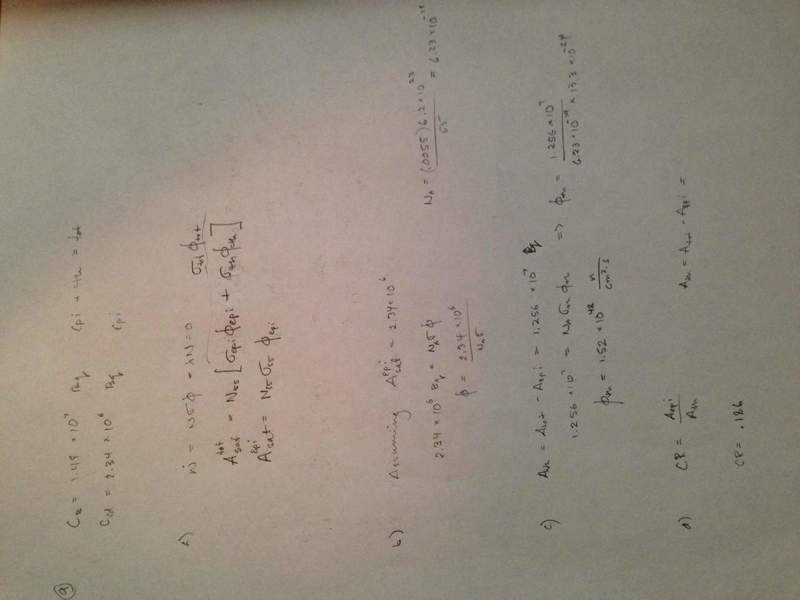 9)
C_B = 1.49 × 10^7 Bq epi + th = tot
C_cd = 2.34 × 10^6 Bq epi
a) Ṅ = Nσφ - λN = 0
σ_tot φ_tot
A_sat^tot = N_55 [σ_epi φ_epi + σ_th φ_th]
A_sat^epi = N_55 σ_55 φ_epi
b) Assuming A_sat^epi = 2.34×10^6
2.34 × 10^6 Bq = N_A σ φ
N_A = (.0055) 6.2 × 10^23 / 55 = 6.23 × 10^-19
φ = 2.34 × 10^6 / N_A σ
c) A_th = A_tot - A_epi = 1.256 × 10^7 Bq
1.256 × 10^7 = N_A σ_th φ_th => φ_th = 1.256 × 10^7 / 6.23 × 10^-19 × 13.3 × 10^-24
φ_th = 1.52 × 10^48 n / cm²·s
d) CR = A_epi / A_th A_th = A_tot - A_epi =
CR = .186